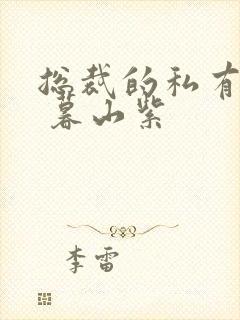 总裁的私有
暮山紫
李雷